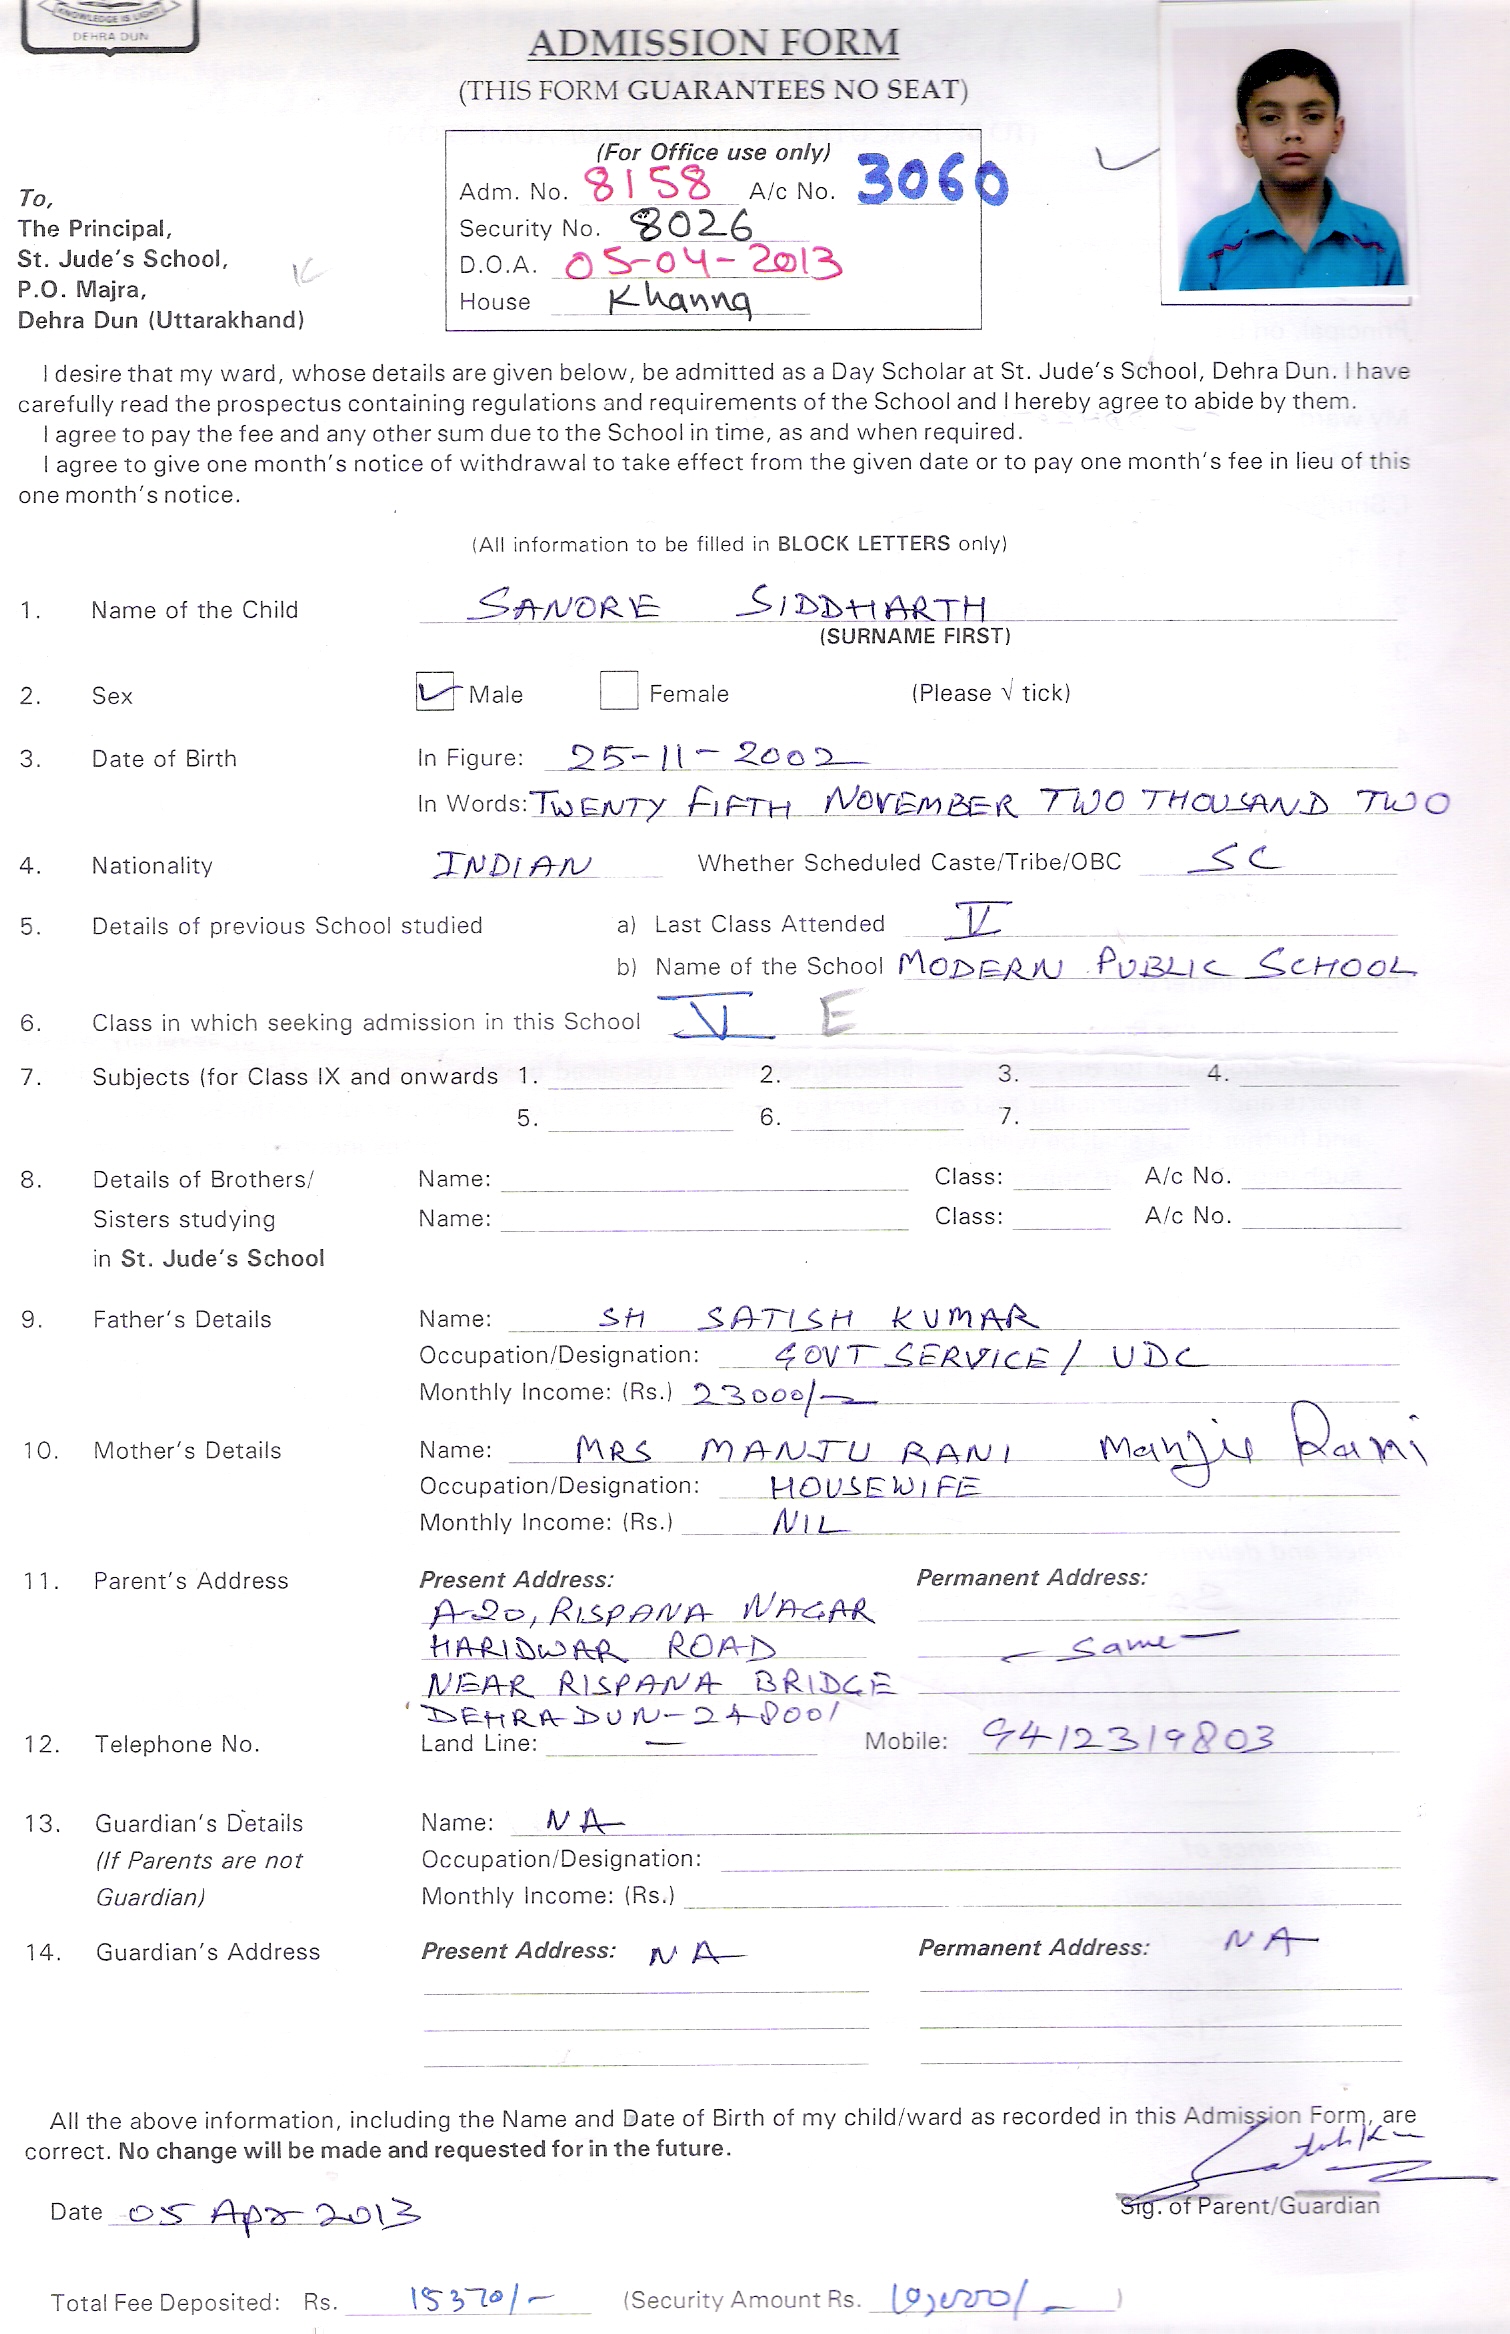 KNOWLEDGE IS LIGHT
DEHRA DUN
ADMISSION FORM
(THIS FORM GUARANTEES NO SEAT)
(For Office use only)
Adm. No. 8158 A/c No. 3060
Security No. 8026
D.O.A. 05-04-2013
House Khanna
To,
The Principal,
St. Jude's School,
P.O. Majra,
Dehra Dun (Uttarakhand)
I desire that my ward, whose details are given below, be admitted as a Day Scholar at St. Jude's School, Dehra Dun. I have
carefully read the prospectus containing regulations and requirements of the School and I hereby agree to abide by them.
I agree to pay the fee and any other sum due to the School in time, as and when required.
I agree to give one month's notice of withdrawal to take effect from the given date or to pay one month's fee in lieu of this
one month's notice.
(All information to be filled in BLOCK LETTERS only)
1. Name of the Child SANORE SIDDHARTH
(SURNAME FIRST)
2. Sex Male Female (Please √ tick)
3. Date of Birth In Figure: 25-11-2002
In Words: TWENTY FIFTH NOVEMBER TWO THOUSAND TWO
4. Nationality INDIAN Whether Scheduled Caste/Tribe/OBC SC
5. Details of previous School studied a) Last Class Attended V
b) Name of the School MODERN PUBLIC SCHOOL
6. Class in which seeking admission in this School V E
7. Subjects (for Class IX and onwards 1. 2. 3. 4.
5. 6. 7.
8. Details of Brothers/ Name: Class: A/c No.
Sisters studying Name: Class: A/c No.
in St. Jude's School
9. Father's Details Name: SH SATISH KUMAR
Occupation/Designation: GOVT SERVICE / UDC
Monthly Income: (Rs.) 23000/-
10. Mother's Details Name: MRS MANJU RANI Manju Rani
Occupation/Designation: HOUSEWIFE
Monthly Income: (Rs.) NIL
11. Parent's Address Present Address: Permanent Address:
A-20, RISPANA NAGAR
HARIDWAR ROAD - Same -
NEAR RISPANA BRIDGE
DEHRADUN-248001
12. Telephone No. Land Line: - Mobile: 9412319803
13. Guardian's Details Name: NA
(If Parents are not Occupation/Designation:
Guardian) Monthly Income: (Rs.)
14. Guardian's Address Present Address: NA Permanent Address: NA
All the above information, including the Name and Date of Birth of my child/ward as recorded in this Admission Form, are
correct. No change will be made and requested for in the future.
Date 05 Apr 2013 Sig. of Parent/Guardian
Total Fee Deposited: Rs. 15370/- (Security Amount Rs. 10,000/- )